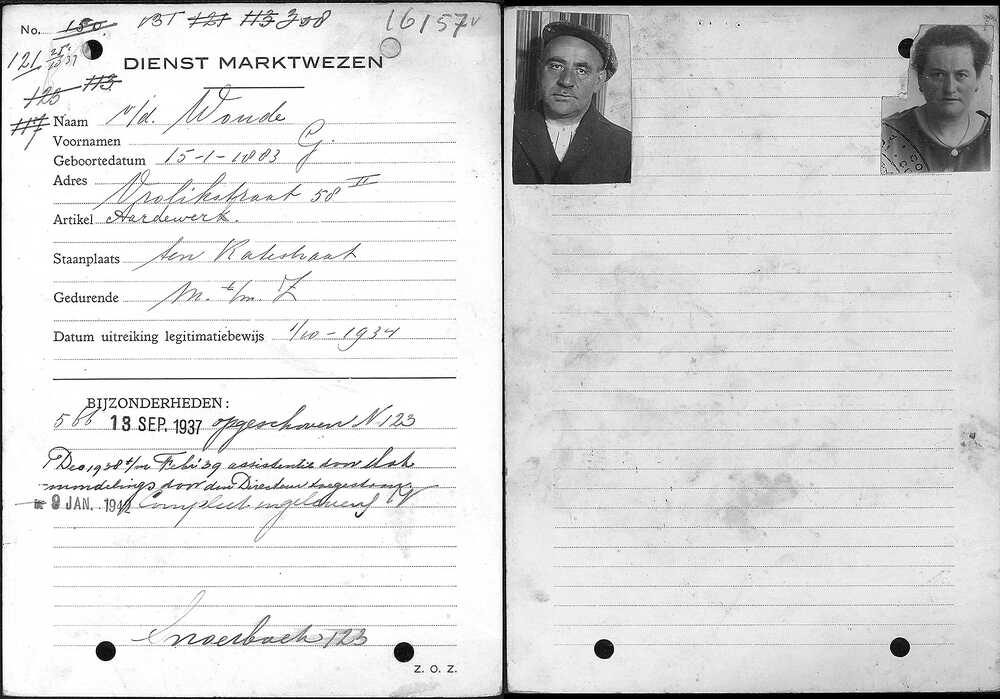 No. 150. 131 121 113 308 16157v
121 25a/10 37
DIENST MARKTWEZEN
123 113
117
Naam v/d. Woude
Voornamen G.
Geboortedatum 15-1-1883
Adres Vrolikstraat 58 II
Artikel Aardewerk.
Staanplaats ten Katestraat
Gedurende M. t/m. Z
Datum uitreiking legitimatiebewijs 1/10-1934
BIJZONDERHEDEN:
566 13 SEP. 1937 opgeschoven N 123
Dec 1938 t/m Febr 39 assistentie door
door den Directeur toegestaan
9 JAN. 1942 Compleet ingeleverd
123
Z. O. Z.